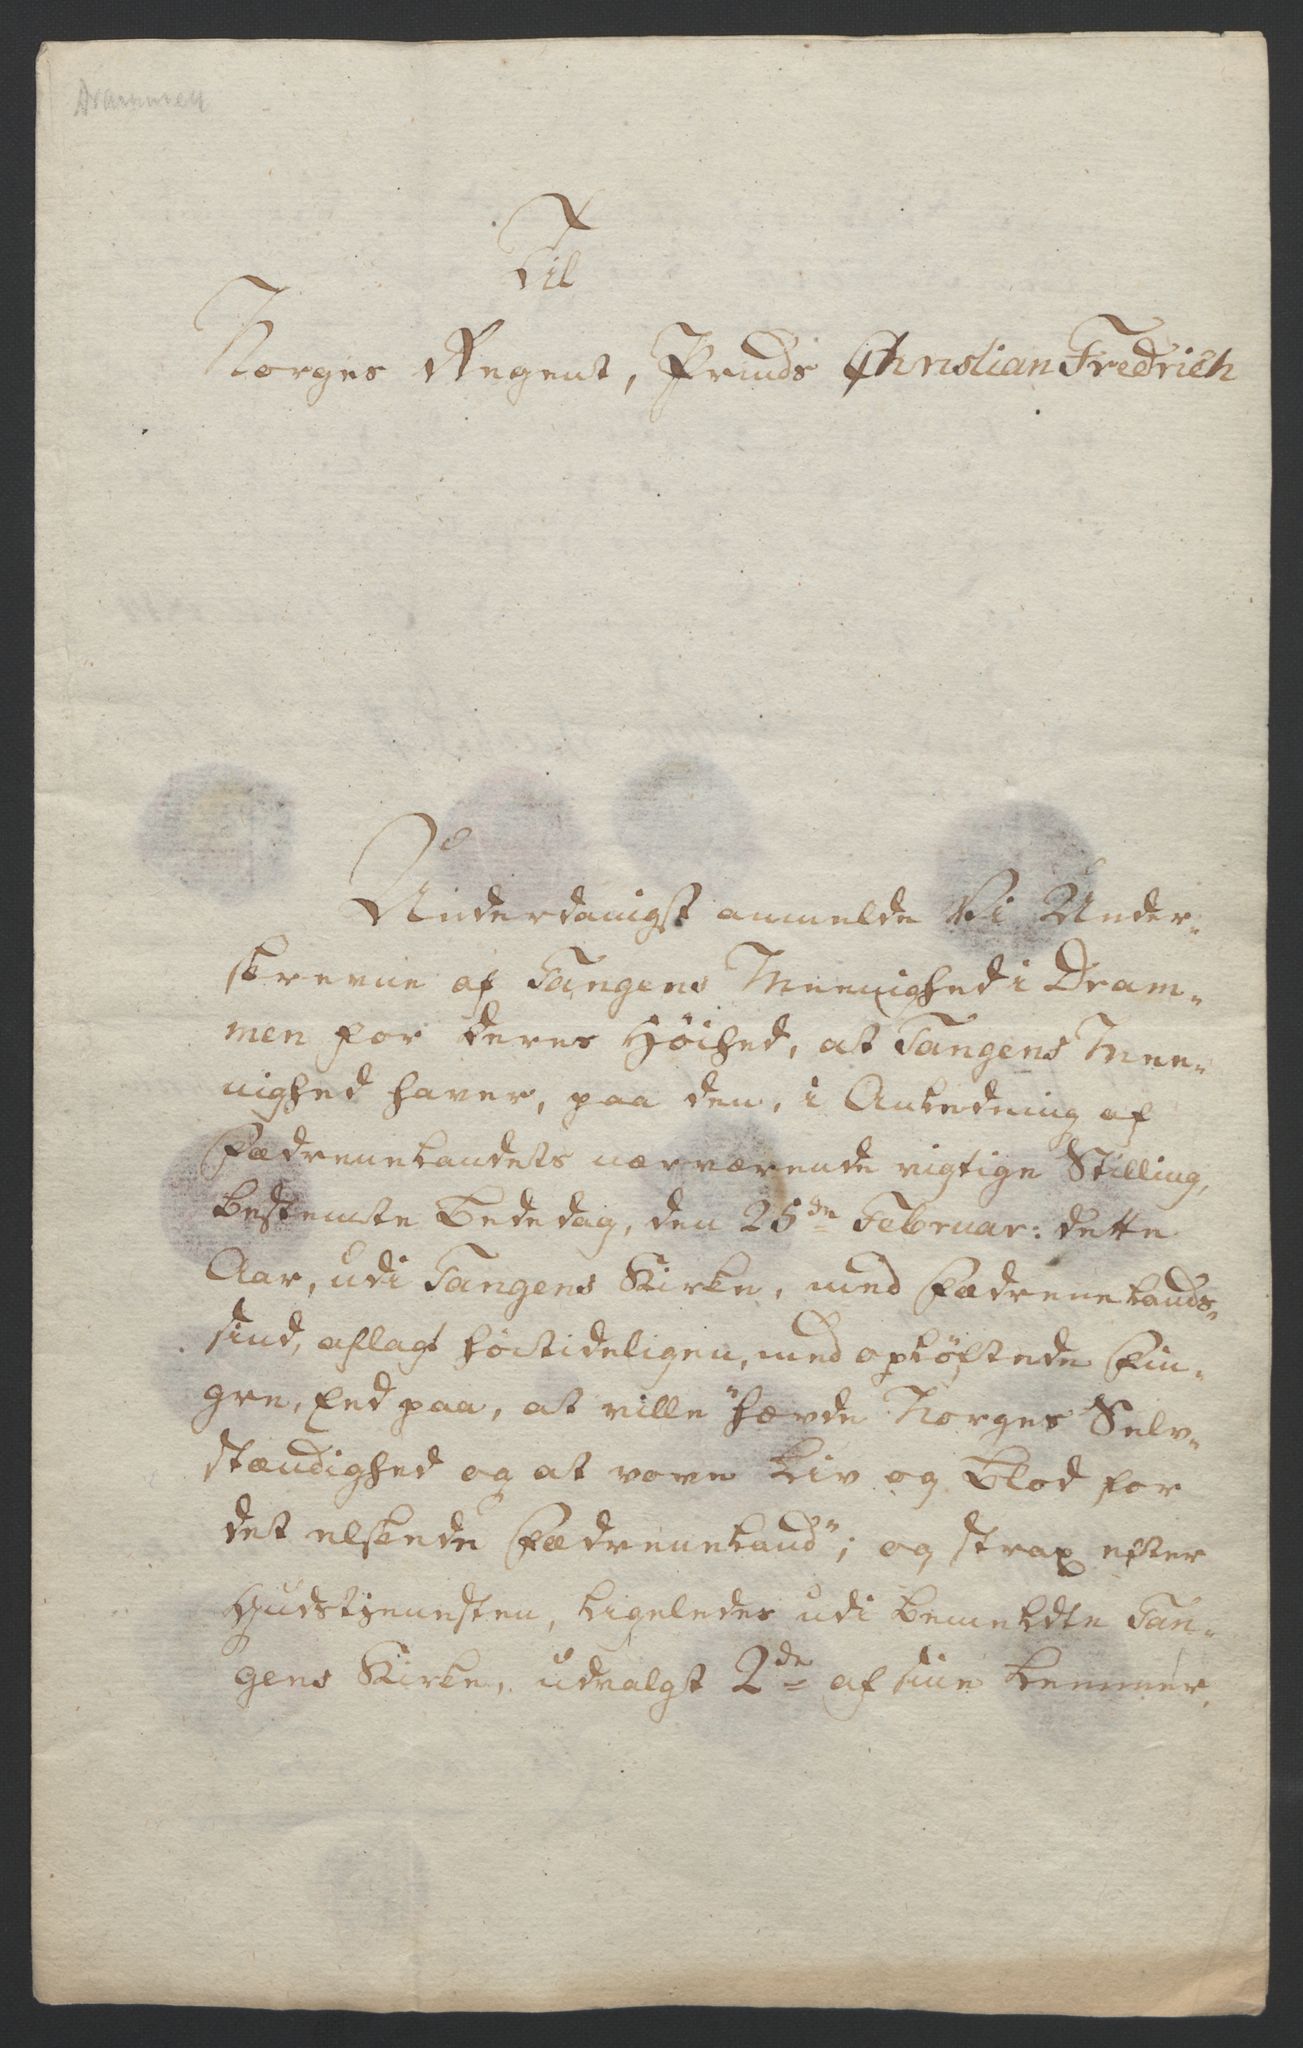 Drammen
Til
Norges Regent, Prinds Christian Fredrich
Underdanigst anmelde Vi Under-
skrevne af Tangens Meenighed i Dram-
men for Deres Høihed, at Tangens Mee-
nighed haver, paa den, i Anledning af
Fædrenelandets nærværende vigtige Stilling,
bestemte Bededag, den 25de Februar: dette
Aar, udi Tangens Kirke, med Fædrenelands-
sind, aflagt høitideligen, med opløftede Fin-
gre, Eed paa, at ville "hævde Norges Selv-
stændighed og at vove Liv og Blod for
det elskede Fædreneland"; og strax efter
Gudstjenesten, ligeledes udi bemeldte Tan-
gens Kirke, udvalgt 2de af sine Lemmer,